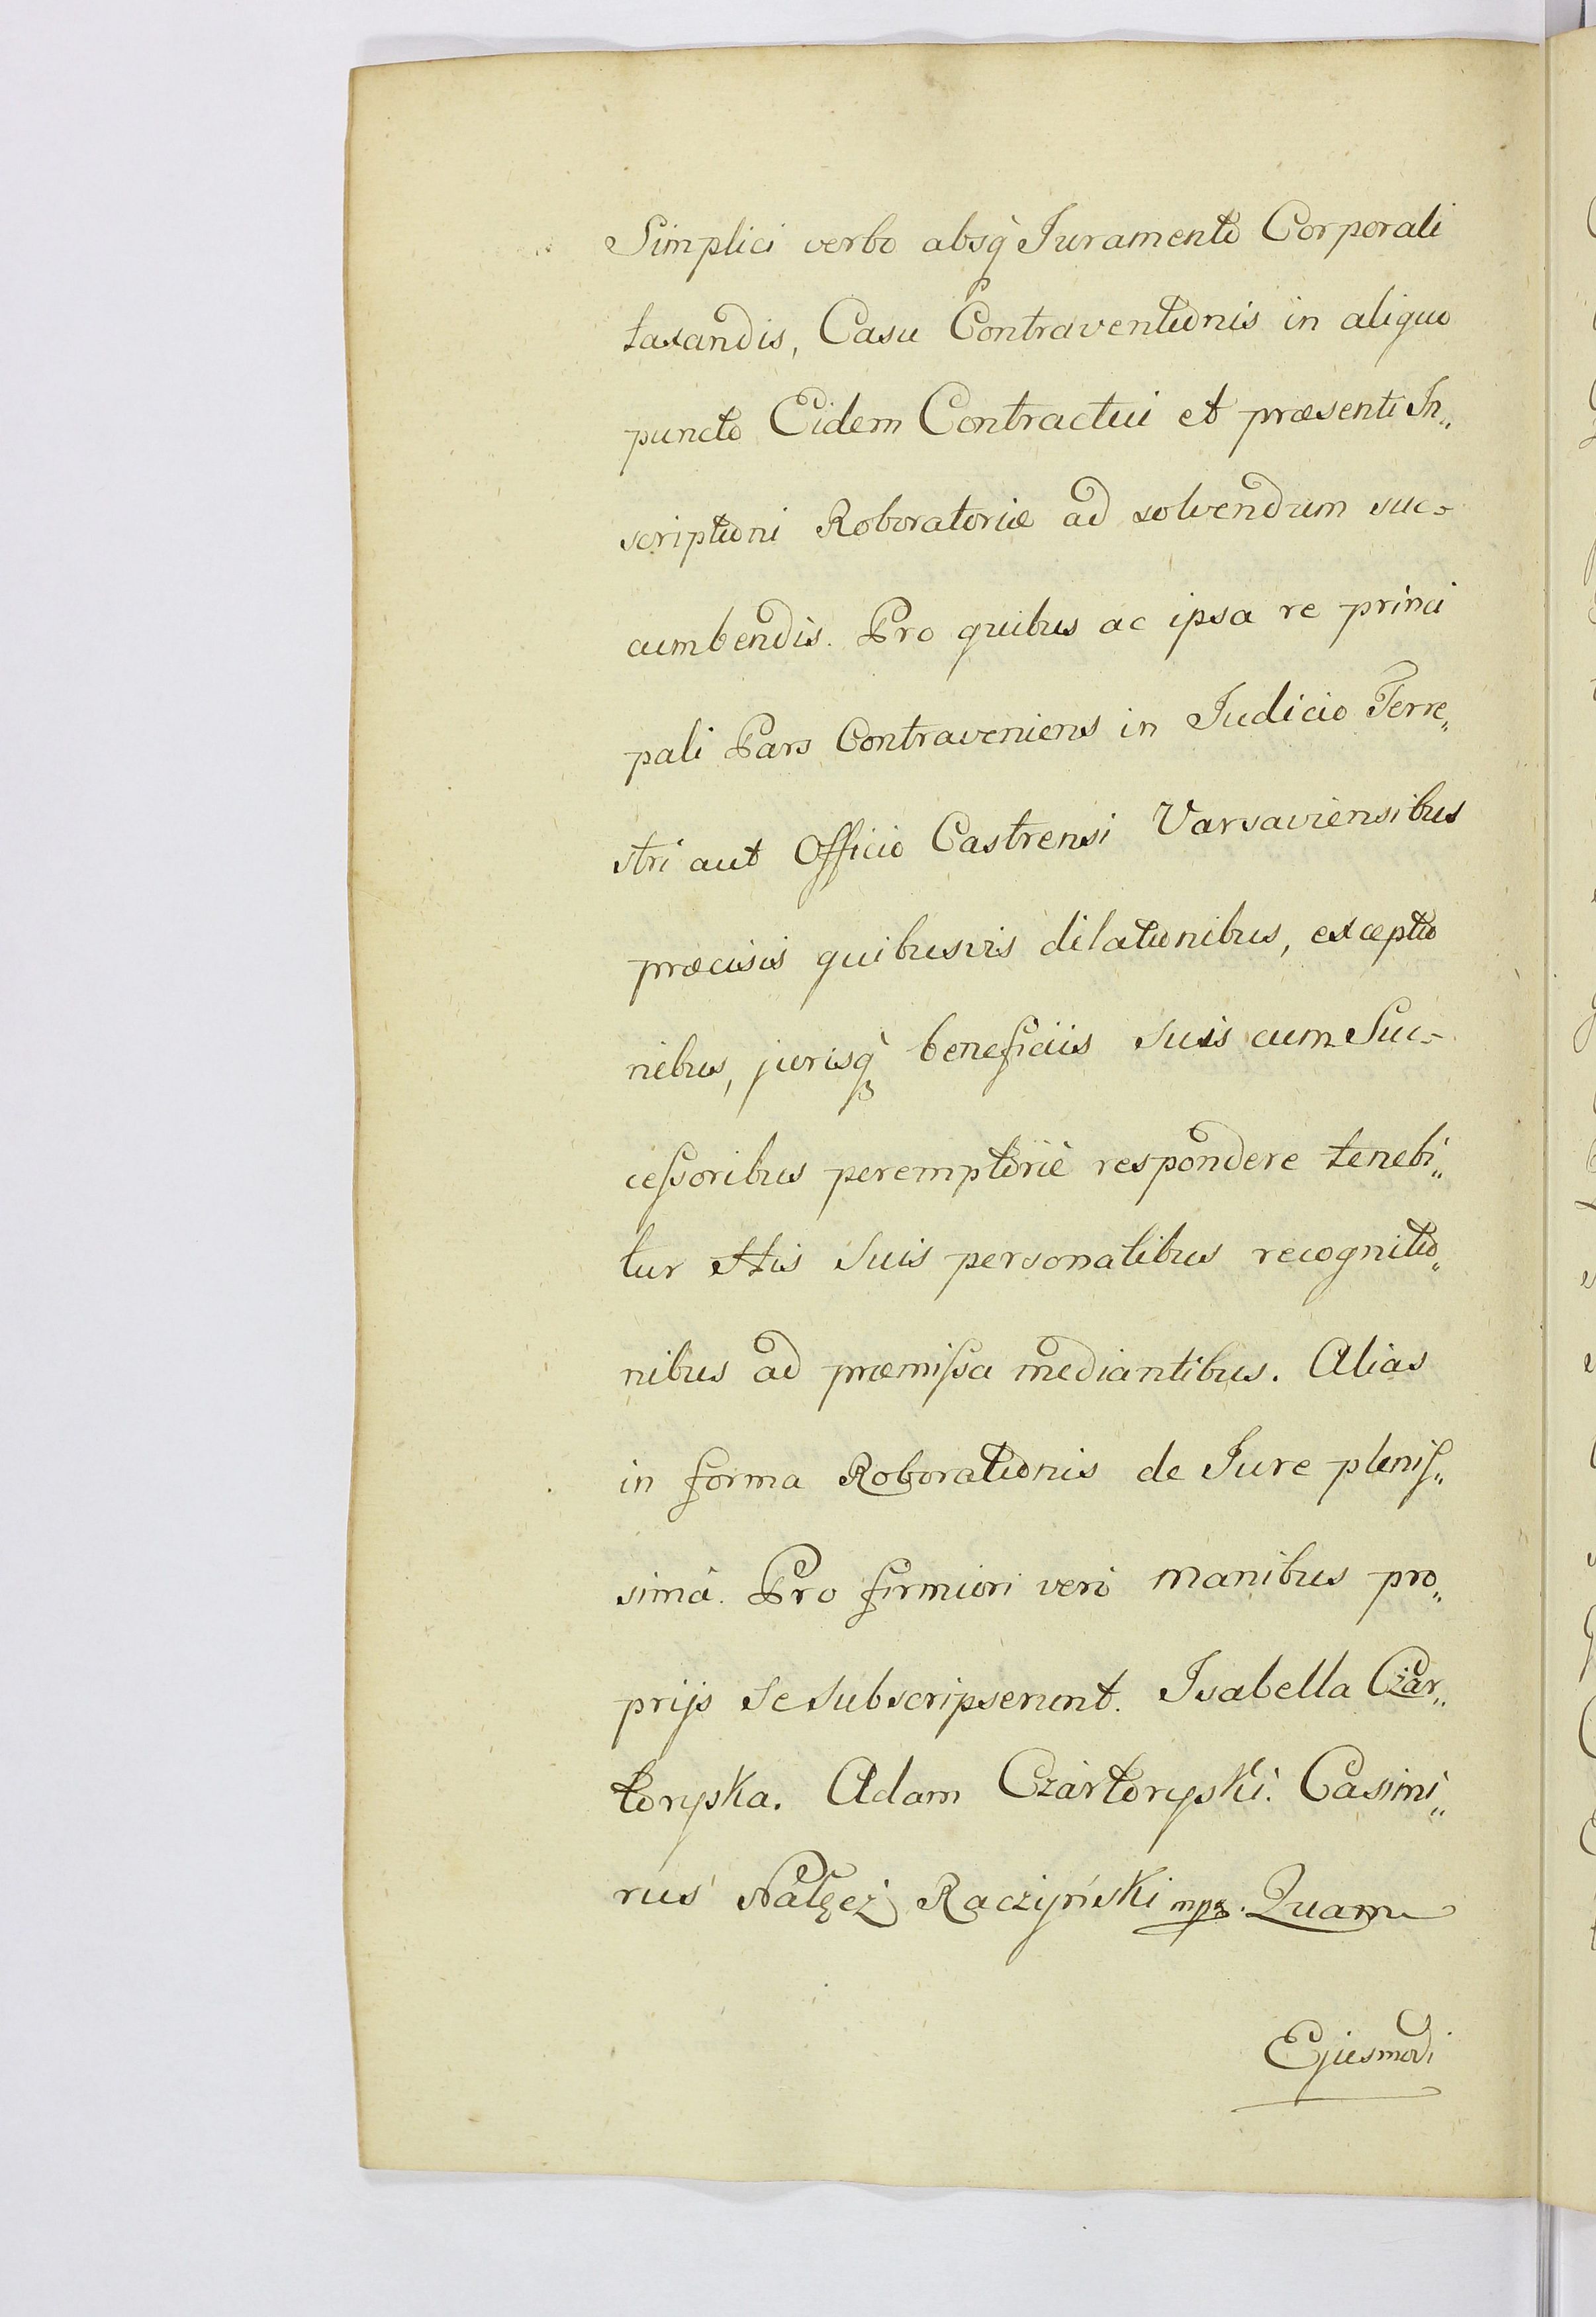 Simplici verbo absq̀ Juramento Corporali
taxandis, Casu Contraventionis in aliquo
puncto Eidem Contractui et præsenti In„
scriptioni Roboratoriæ ad solvendum suc=
cumbendis. Pro quibus ac ipsa re princi
pali Pars Contraveniens in Judicio Terre„
stri aut Officio Castrensi Varsaviensibus
præcisis quibusvis dilationibus, exceptio
nibus, jurisq̀ beneficiis suis cum Suc=
ceſsoribus peremptoriè respondere tenebi„
tur His Suis personalibus recognitio„
nibus ad præmiſsa mediantibus. Alias
in forma Roborationis de Jure pleniſ„
simâ. Pro firmiori verò manibus pro„
prijs se subscripserunt. Isabella Czar„
toryska. Adam Czartoryski. Casimi„
rus Nałęcz Raczyński mpa. Quam
Ejusmodi